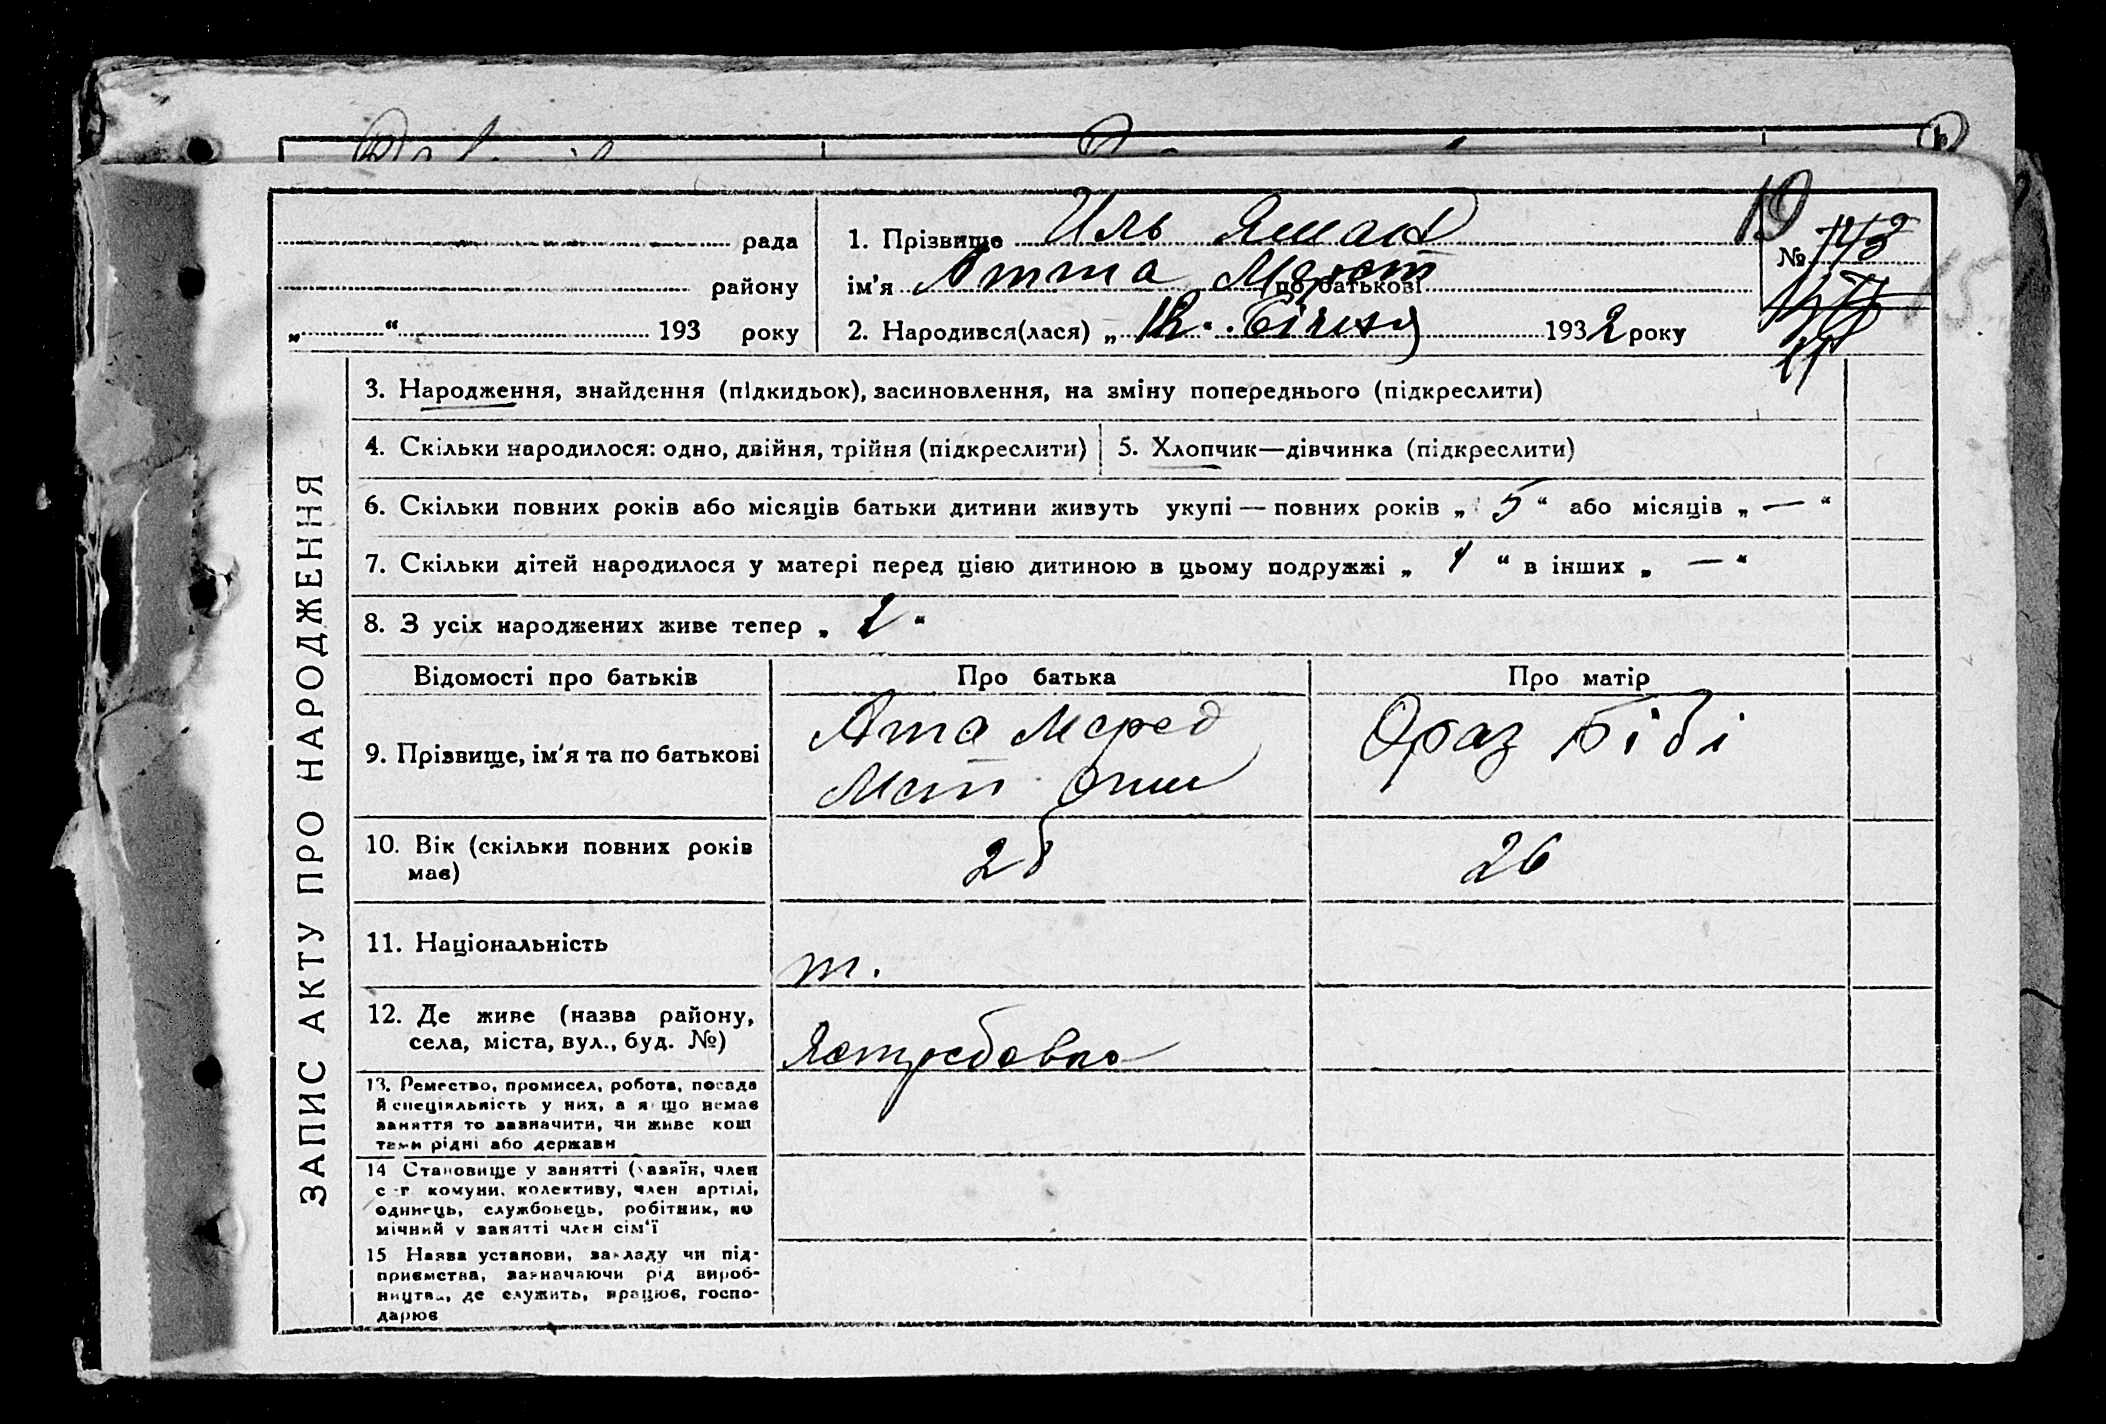 рада
району
„ “ 193 року
1. Прізвище Иль Яман
ім'я Атта по батькові
2. Народився(лася) „ 12 “ Січня 1932 року
№ 143
ЗАПИС АКТУ ПРО НАРОДЖЕННЯ
3. Народження, знайдення (підкидьок), засиновлення, на зміну попереднього (підкреслити)
4. Скільки народилося: одно, двійня, трійня (підкреслити)
5. Хлопчик—дівчинка (підкреслити)
6. Скільки повних років або місяців батьки дитини живуть укупі — повних років „ 5 “ або місяців „ — “
7. Скільки дітей народилося у матері перед цією дитиною в цьому подружжі „ 1 “ в інших „ — “
8. З усіх народжених живе тепер „ 2 “
Відомості про батьків
Про батька
Про матір
9. Прізвище, ім'я та по батькові
Ата Меред
Ораз Бібі
10. Вік (скільки повних років
має)
28
26
11. Національність
т.
12. Де живе (назва району,
села, міста, вул., буд. №)
Ястребовка
13. Ремество, промисел, робота, посада
й спеціяльність у них, а якщо немає
заняття то зазначити, чи живе кош
тами рідні або держави
14 Становище у занятті (хазяїн, член
с-г комуни, колективу, член артілі,
одинець, службовець, робітник, по
мічний у занятті член сім'ї
15 Назва установи, закладу чи під-
приємства, зазначаючи рід вироб-
ництва, де служить, працює, госпо-
дарює